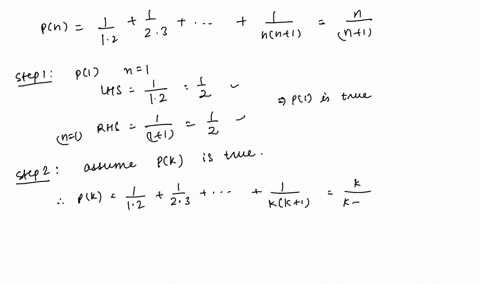 P(n) = 1/1·2 + 1/2·3 + ··· + 1/n(n+1) = n/(n+1)
Step 1: P(1) n=1
LHS = 1/1·2 = 1/2 ✓
⇒ P(1) is true
(n=1) RHS = 1/(1+1) = 1/2 ✓
Step 2: assume P(k) is true.
∴ P(k) = 1/1·2 + 1/2·3 + ··· + 1/k(k+1) = k/k-